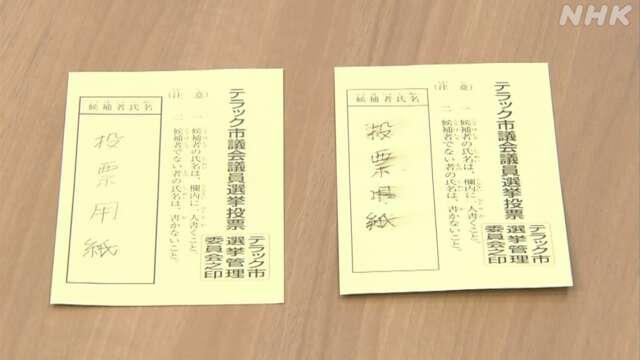 NHK
テラック市議会議員選挙投票
テラック市
選挙管理
委員会之印
(注意)
一 候補者の氏名は、欄内に一人書くこと。
二 候補者でない者の氏名は、書かないこと。
候補者氏名
投票用紙
テラック市議会議員選挙投票
テラック市
選挙管理
委員会之印
(注意)
一 候補者の氏名は、欄内に一人書くこと。
二 候補者でない者の氏名は、書かないこと。
候補者氏名
投票用紙